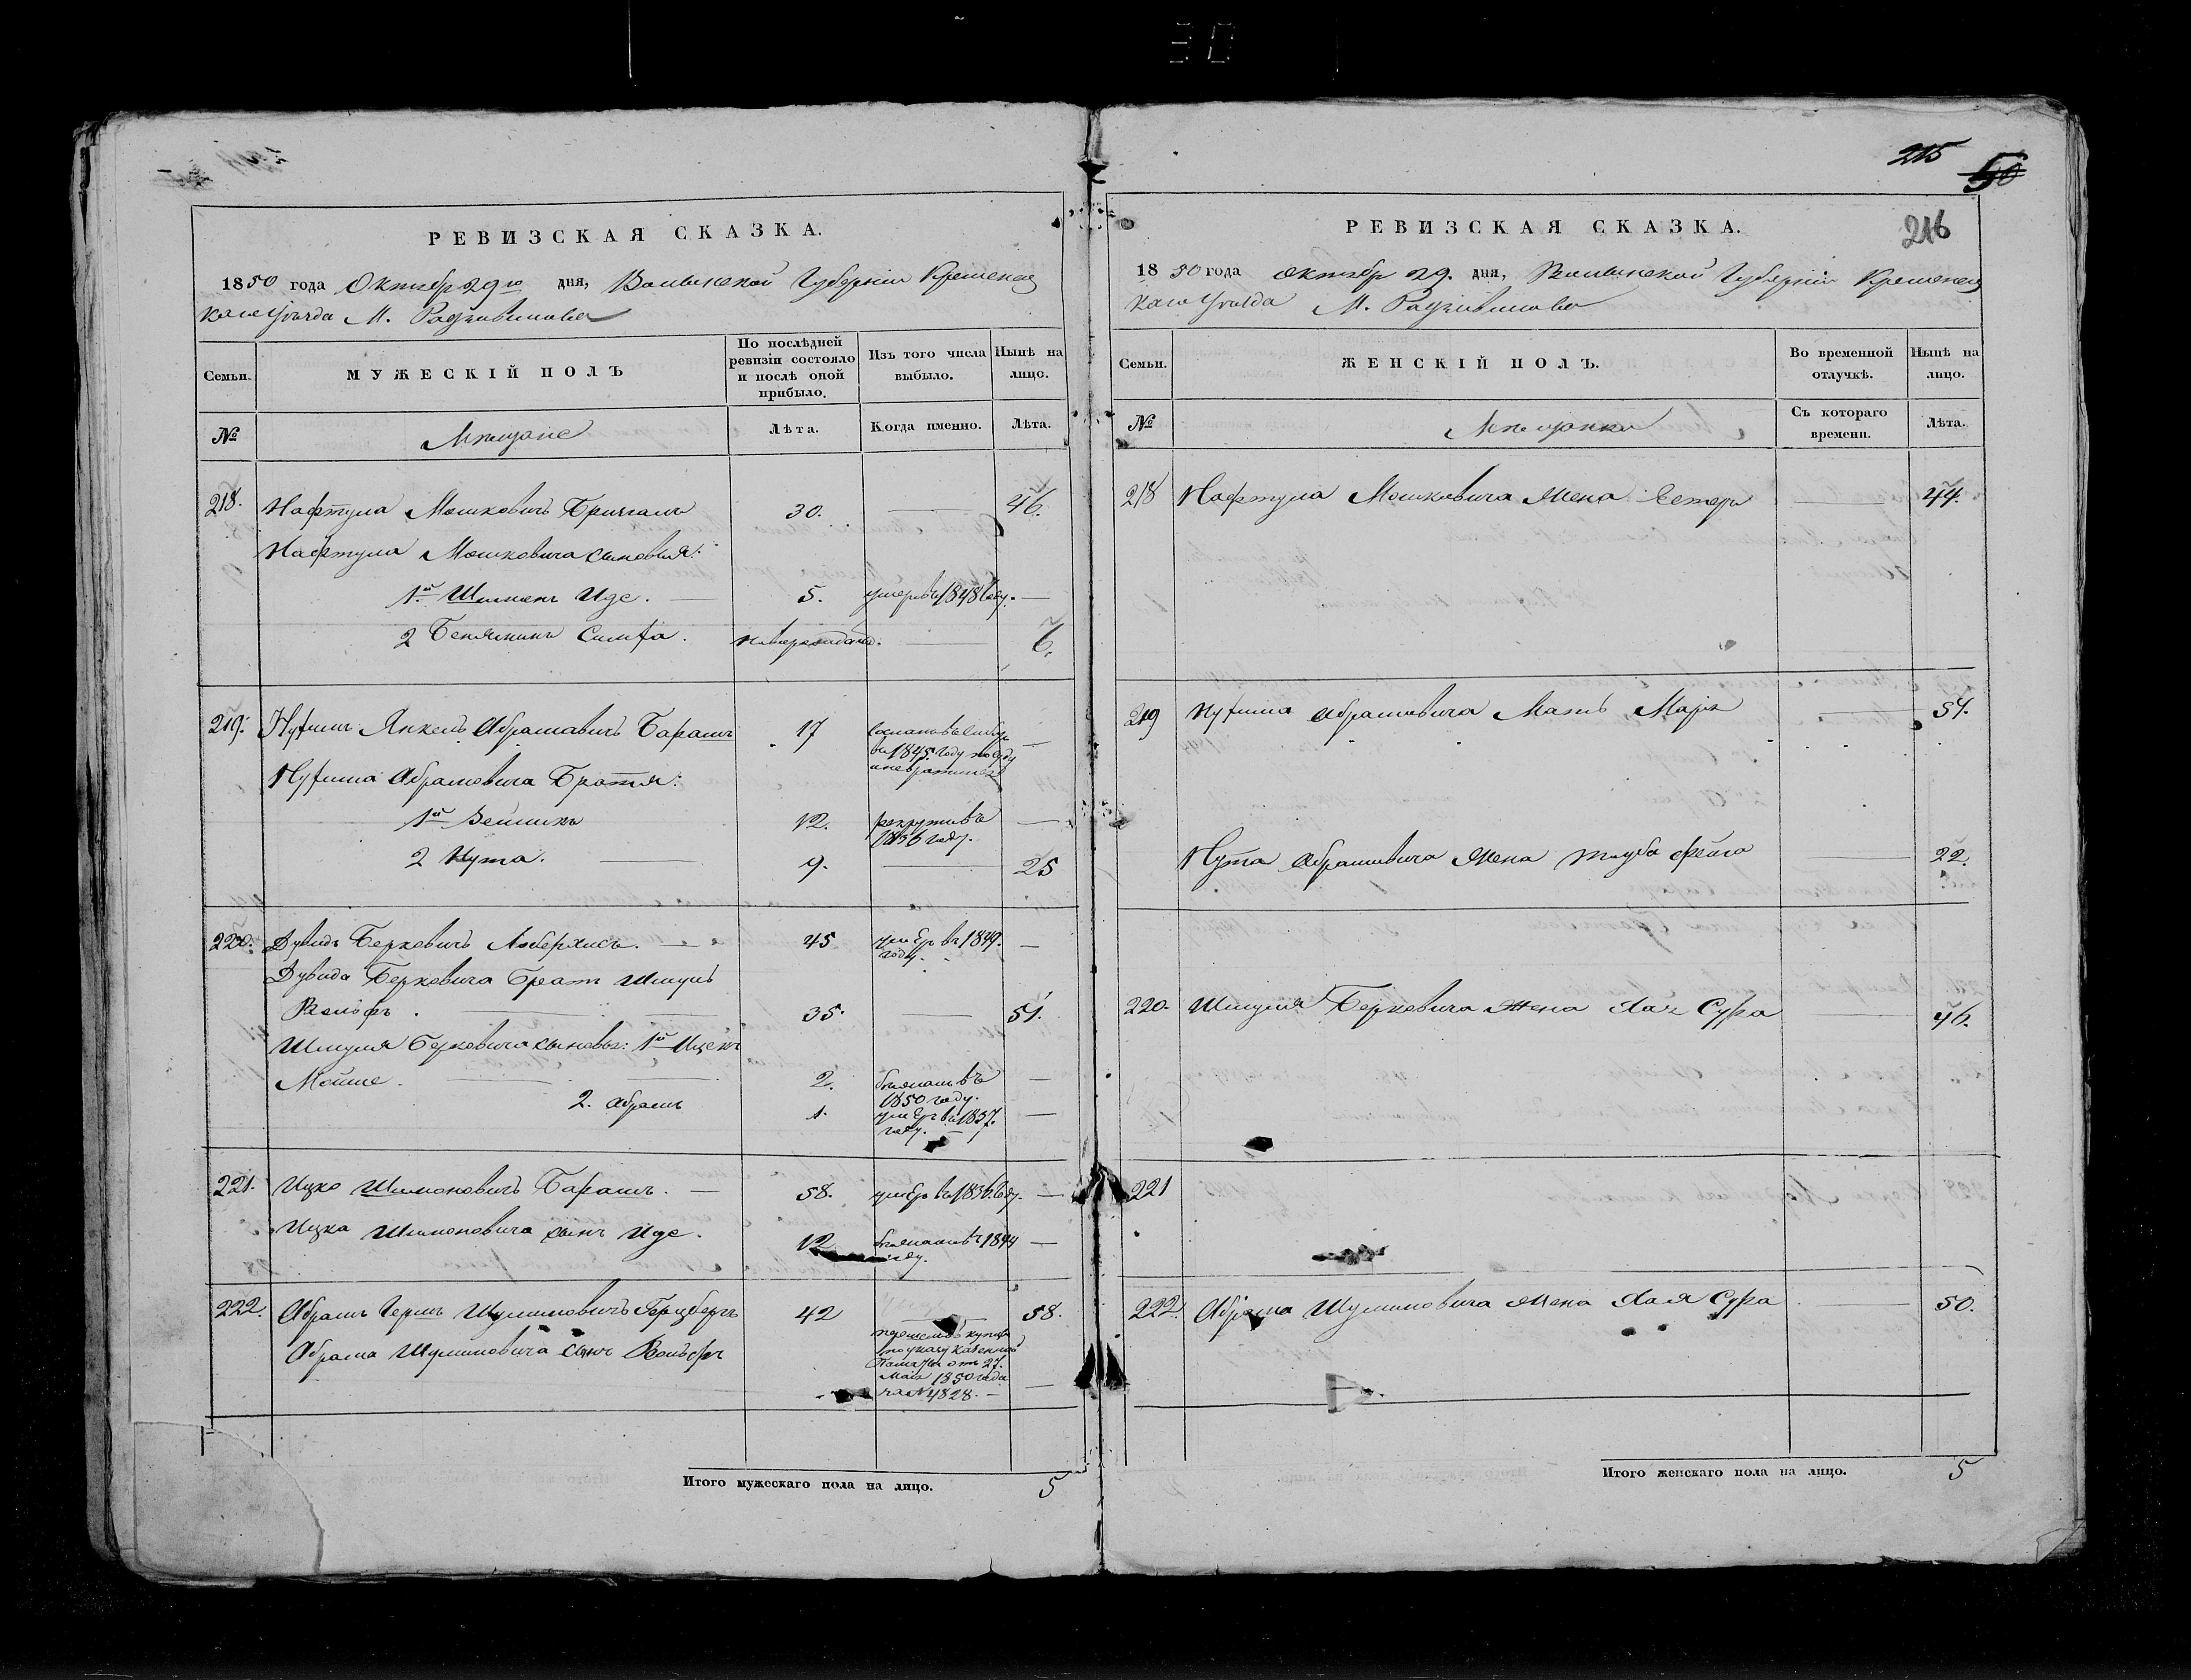 215
50
РЕВИЗСКАЯ СКАЗКА.
1850 года Октября 29го дня, Волынской Губерніи Кременец
каго Уѣзда М. Радзивилова
Семьи.
МУЖЕСКІЙ ПОЛЪ
По послѣдней ревизіи состояло и послѣ оной прибыло.
Изъ того числа выбыло.
Нынѣ на лицо.
№
Мѣщане
Лѣта.
Когда именно.
Лѣта.
218. Нафтула Мошковичъ Бричганъ 30. 46.
Нафтула Мошковича сыновья:
1й Шимонъ Иде. 5. умеръ въ 1848 году.
2 Беняминъ Симха. новорожденъ. 6.
219. Нухимъ Янкель Абрамовичъ Барашъ 17 въ 1845 году
Нухима Абрамовича Братья:
1й 12. рекрутъ въ
1836 году.
2 Нута. 9. 25
220. Дувидъ Берковичъ 45 умеръ въ 1849.
году.
Дувида Берковича братъ Шмуль
Вольфъ. 35. 51.
Шмуля Берковича сыновья: 1й Ицекъ
Мойше. 2. бѣжалъ въ
1850 году.
2. Абрамъ 1. умеръ въ 1837.
году.
221. Ицко Шимоновичъ Барашъ. 58. умеръ въ 1836 году.
Ицка Шимоновича сынъ Иде. 12 бѣжалъ въ 1844
году.
222. Абрамъ Гершъ Шулимовичъ Герцбергъ 42 58.
Абрама Шулимовича сынъ Вольфъ
по указу казенной
Палаты отъ 27.
Мая 1850 года
за № 4828.
Итого мужескаго пола на лицо. 5
РЕВИЗСКАЯ СКАЗКА.
216
1850 года октября 29. дня, Волынской Губерніи Кременец
каго Уѣзда М. Радзивилова
Семьи.
ЖЕНСКІЙ ПОЛЪ.
Во временной отлучкѣ.
Нынѣ на лицо.
№
Мѣщанки
Съ котораго времени.
Лѣта.
218 Нафтула Мошковича жена Естеръ 44.
219 Нухима Абрамовича Мать Марья 54.
Нута Абрамовича жена Тауба Фейга 22.
220. Шмуля Берковича жена Хая Сура 46.
221
222. Абрама Шулимовича жена Хая Сура 50.
Итого женскаго пола на лицо. 5